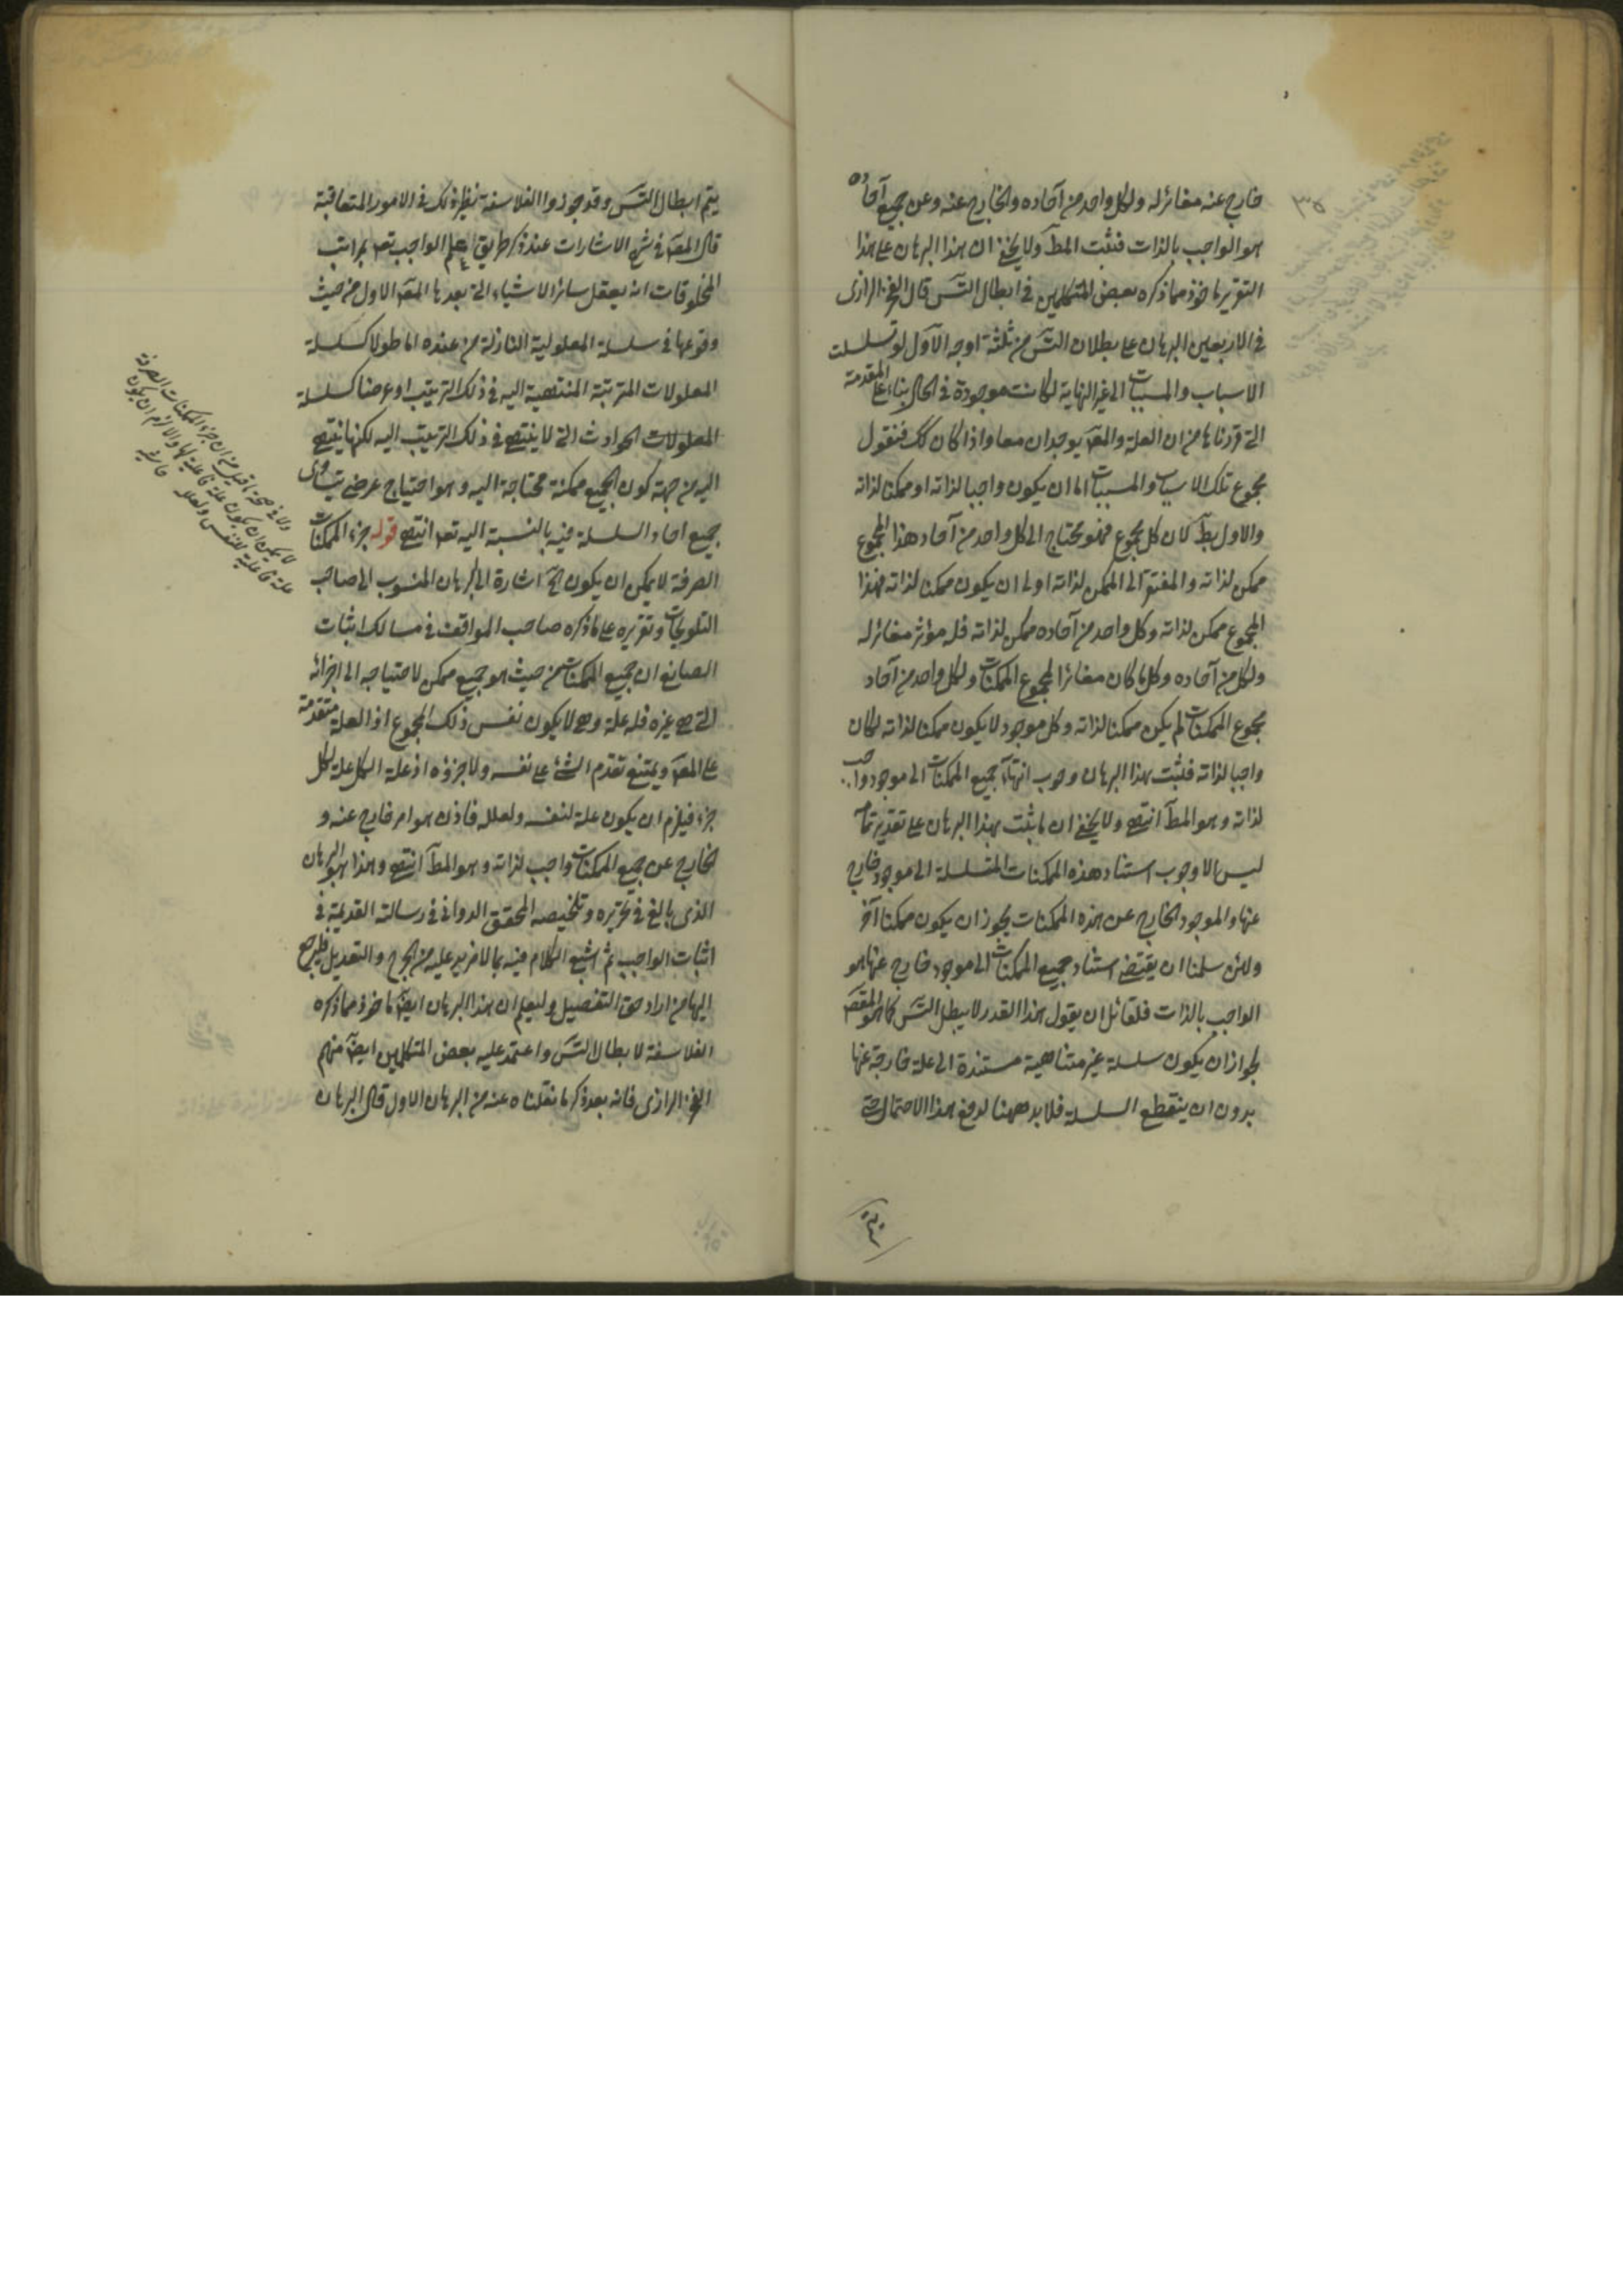 خارج عنه مغائر له ولكل واحد من آحاده والخارج عنه وعن جميع آحاده
هو الواجب بالذات فثبت المط ولا يخفى ان هذا البرهان على هذا
التقرير ماخوذ مما ذكره بعض المتكلمين في ابطال التس قال الفخر الرازى
في الاربعين البرهان على بطلان التس من ثلثة اوجه الاول لو تسلسلت
الاسباب والمسببات الى غير النهاية لكانت موجودة في الحال بناء على المقدمة
التي قررناها من ان العلة والمعـ يوجدان معا واذا كان كك فنقول
مجموع تلك الاسباب والمسببات اما ان يكون واجبا لذاته او ممكنا لذاته
والاول بط لان كل مجموع فهو محتاج الى كل واحد من آحاد هذا المجموع
ممكن لذاته والمفتقر الى الممكن لذاته اولى ان يكون ممكنا لذاته فهذا
المجموع ممكن لذاته وكل واحد من آحاده ممكن لذاته فله مؤثر مغائر له
ولكل من آحاده وكل ما كان مغائرا لمجموع الممكنات ولكل واحد من آحاد
مجموع الممكنات لم يكن ممكنا لذاته وكل موجود لا يكون ممكنا لذاته لكان
واجبا لذاته فثبت بهذا البرهان وجوب انتهاء جميع الممكنات الى موجود واجب
لذاته وهو المط انتهى ولا يخفى ان ما يثبت بهذا البرهان على تقدير تمامه
ليس الا وجوب استناد هذه الممكنات المتسلسلة الى موجود خارج
عنها والموجود الخارج عن هذه الممكنات يجوز ان يكون ممكنا آخر
ولئن سلمنا ان يقتضى استناد جميع الممكنات الى موجود خارج عنها هو
الواجب بالذات فلقائل ان يقول هذا القدر لا يبطل التس كما هو المقصـ
لجواز ان يكون سلسلة غير متناهية مستندة الى علة خارجة عنها
بدون ان ينقطع السلسلة فلا بد ههنا لدفع هذا الاحتمال حتى
يتم ابطال التس وقد جوزوا الفلاسفة نظير ذلك في الامور المتعاقبة
قال المصـ في شرح الاشارات عند ذكر طريق علم الواجب تعـ بمراتب
المخلوقات انه يعقل سائر الاشياء التي بعدها المعـ الاول من حيث
وقوعها في سلسلة المعلولية النازلة من عنده اما طولا كسلسلة
المعلولات المترتبة المنتهية اليه في ذلك الترتيب او عرضا كسلسلة
المعلولات الحوادث التي لا ينتهى في ذلك الترتيب اليه لكنها ينتهى
اليه من جهة كون الجميع ممكنة محتاجة اليه وهو احتياج عرضى يتساوى
جميع احاد السلسلة فيه بالنسبة اليه تعـ انتهى قوله جزء الممكنات
الصرفة لا يمكن ان يكون الخ اشارة الى البرهان المنسوب الى صاحب
التلويحات وتقريره على ما ذكره صاحب المواقف في مسالك اثبات
الصانع ان جميع الممكنات من حيث هو جميع ممكن لاحتياجه الى اجزائه
التي هي غيره فله علة وهي لا يكون نفس ذلك المجموع اذ العلة متقدمة
على المعـ ويمتنع تقدم الشئ على نفسه ولا جزؤه اذ علة الكل علة لكل
جزء فيلزم ان يكون علة لنفسه ولعلله فاذن هو امر خارج عنه و
الخارج عن جميع الممكنات واجب لذاته وهو المط انتهى وهذا هو البرهان
الذى بالغ في تحريره وتلخيصه المحقق الدوانى في رسالته القديمة في
اثبات الواجب ثم اشبع الكلام فيه بما لا مزيد عليه من الجرح والتعديل فليرجع
اليها من اراد حق التفصيل وليعلم ان هذا البرهان ايضا ماخوذ مما ذكره
الفلاسفة لابطال التس واعتمد عليه بعض المتكلمين ايضا منهم
الفخر الرازى فانه بعد ذكر ما نقلناه عنه من البرهان الاول قال البرهان
من ان جزء الممكنات الصرفة
لا يمكن ان يكون علة فاعلية لها والا لزم ان يكون
علة فاعلية لنفس ولعلله